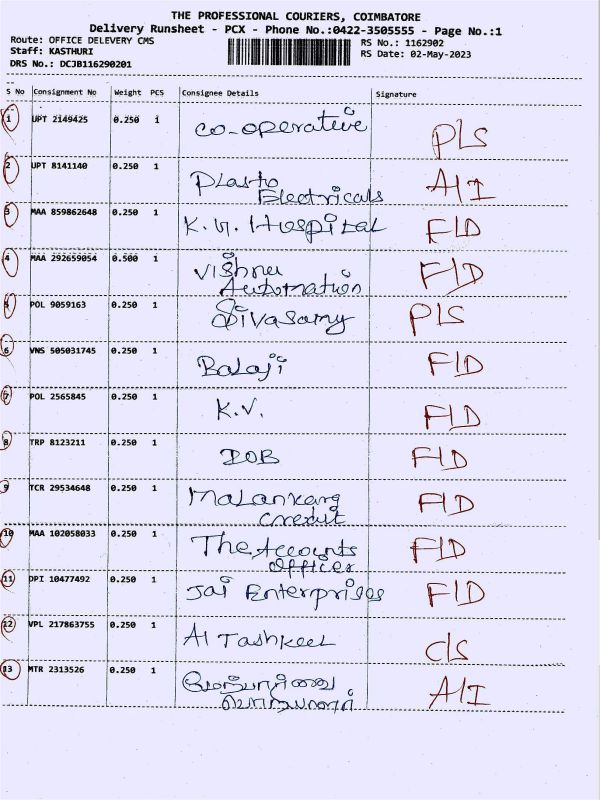 THE PROFESSIONAL COURIERS, COIMBATORE
Delivery Runsheet - PCX - Phone No.:0422-3505555 - Page No.:1
Route: OFFICE DELEVERY CMS
Staff: KASTHURI
DRS No.: DCJB116290201
RS No.: 1162902
RS Date: 02-May-2023
S No Consignment No Weight PCS Consignee Details Signature
1 UPT 2149425 0.250 1 co-operative PLS
2 UPT 8141140 0.250 1 Plasto Electricals A/I
3 MAA 859862648 0.250 1 K.G. Hospital F/D
4 MAA 292659054 0.500 1 Vishnu Automation F/D
5 POL 9059163 0.250 1 Sivasamy P/S
6 VNS 505031745 0.250 1 Balaji F/D
7 POL 2565845 0.250 1 K.V. F/D
8 TRP 8123211 0.250 1 IOB F/D
9 TCR 29534648 0.250 1 Malankara credit F/D
10 MAA 102058033 0.250 1 The Accounts officer F/D
11 DPI 10477492 0.250 1 Jai Enterprises F/D
12 VPL 217863755 0.250 1 Al Tashkeel C/S
13 MTR 2313526 0.250 1 மேற்பார்வை பொறியாளர் A/I